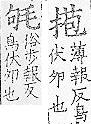 菢
薄報反鳥
伏卵也
俗步報反
鳥伏卵也